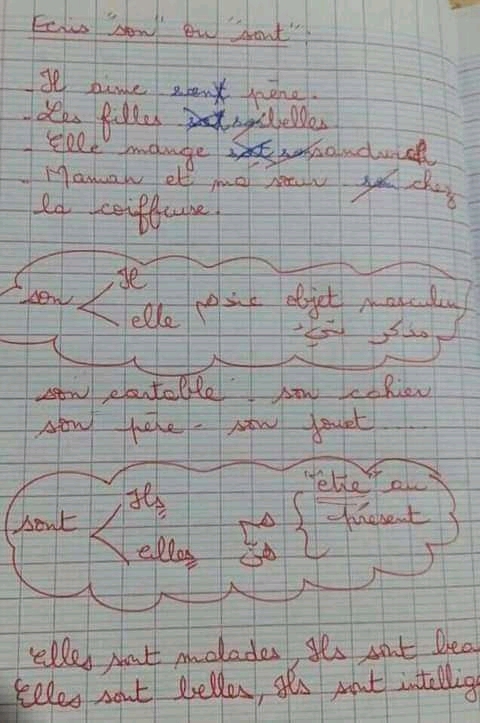 Ecris "son" ou "sont":
- Il aime sont père.
- Les filles belles
- Elle mange sandwich
- Maman et ma sœur son chez
la coiffeuse.
son Il objet masculin
elle مذكر
son cartable - son cahier
son père - son jouet ....
sont Ils "être" au
elles présent
هم
هنّ
Elles sont malades, Ils sont bea
Elles sont belles, Ils sont intellig